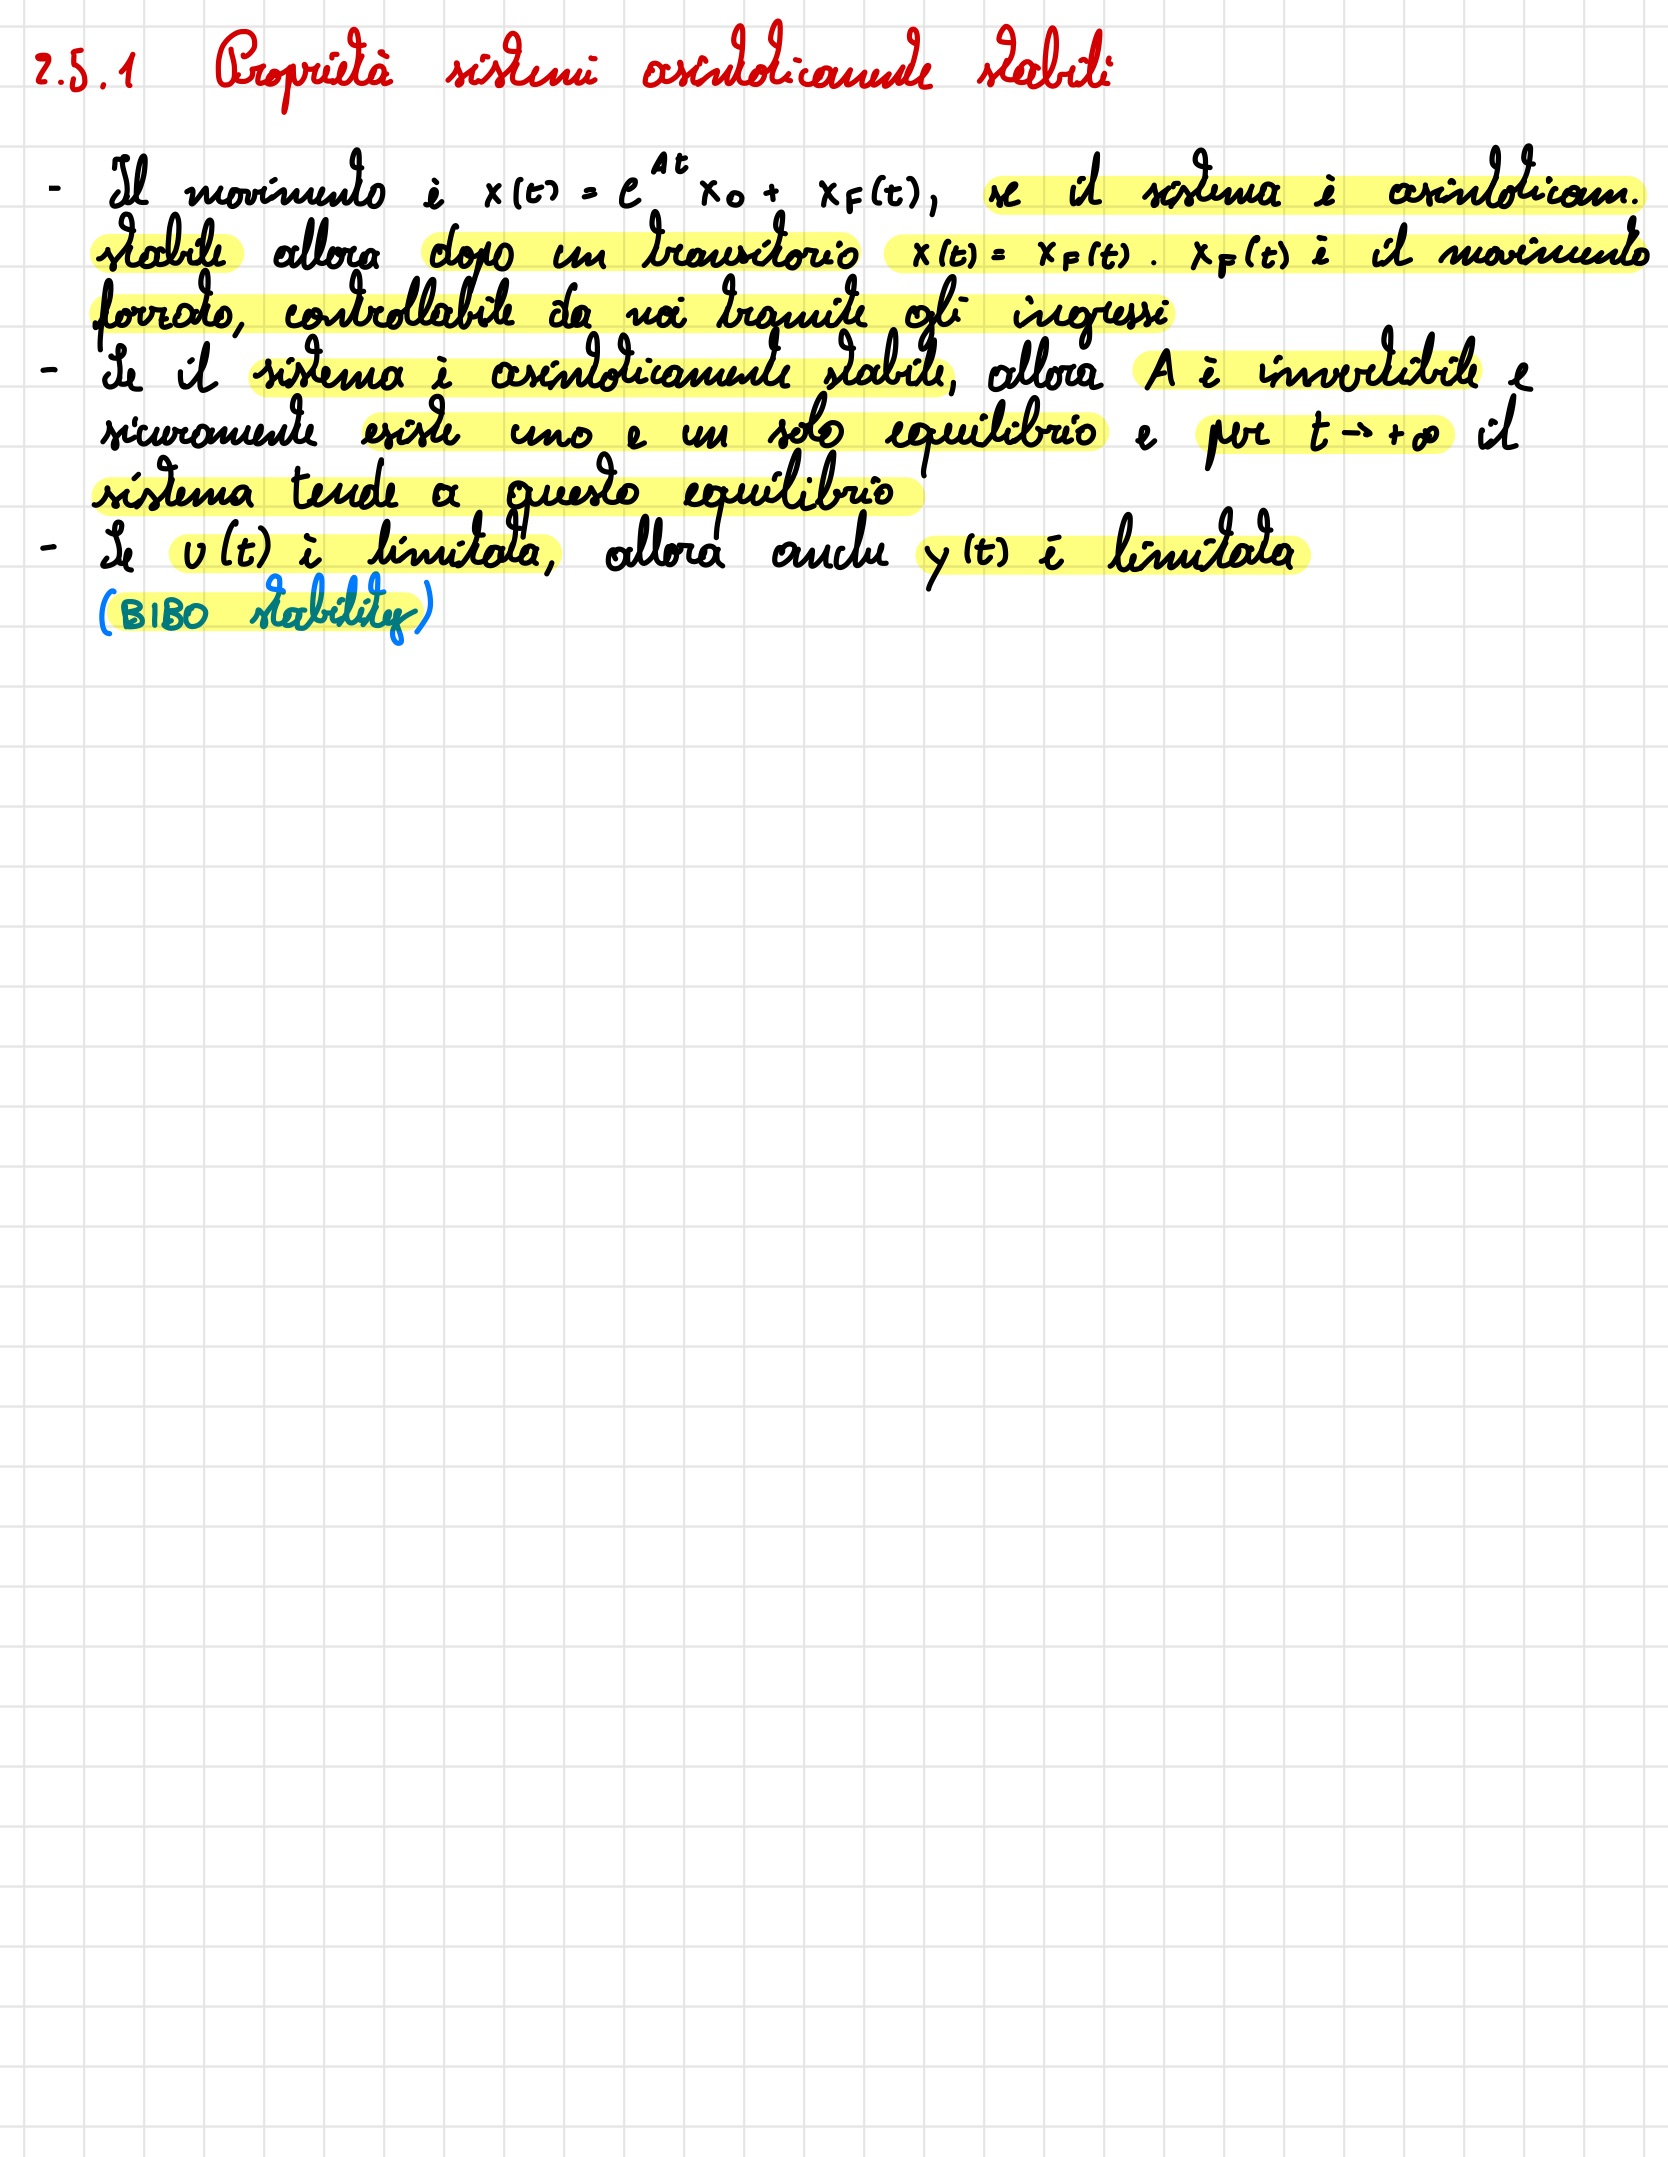 2.5.1 Proprietà sistemi asintoticamente stabili
- Il movimento è x(t) = e^{At} x₀ + x_F(t), se il sistema è asintoticam.
stabile allora dopo un transitorio x(t) = x_F(t). x_F(t) è il movimento
forzato, controllabile da noi tramite gli ingressi
- Se il sistema è asintoticamente stabile, allora A è invertibile e
sicuramente esiste uno e un solo equilibrio e per t → +∞ il
sistema tende a questo equilibrio
- Se u(t) è limitata, allora anche y(t) è limitata
(BIBO stability)